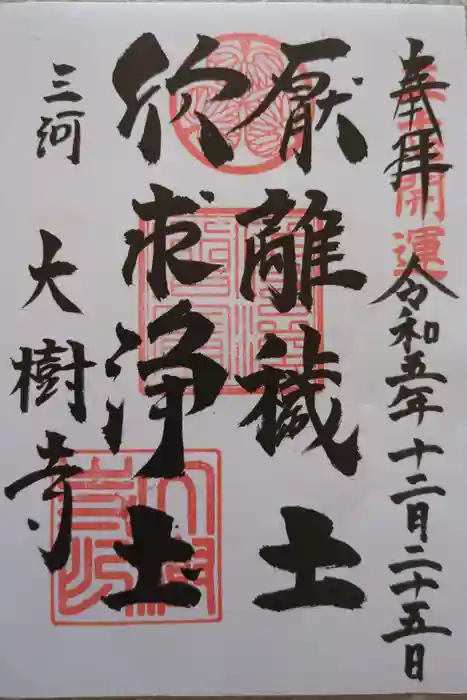 奉拝 令和五年十二月二十五日
開運
厭離穢土
欣求浄土
三河 大樹寺